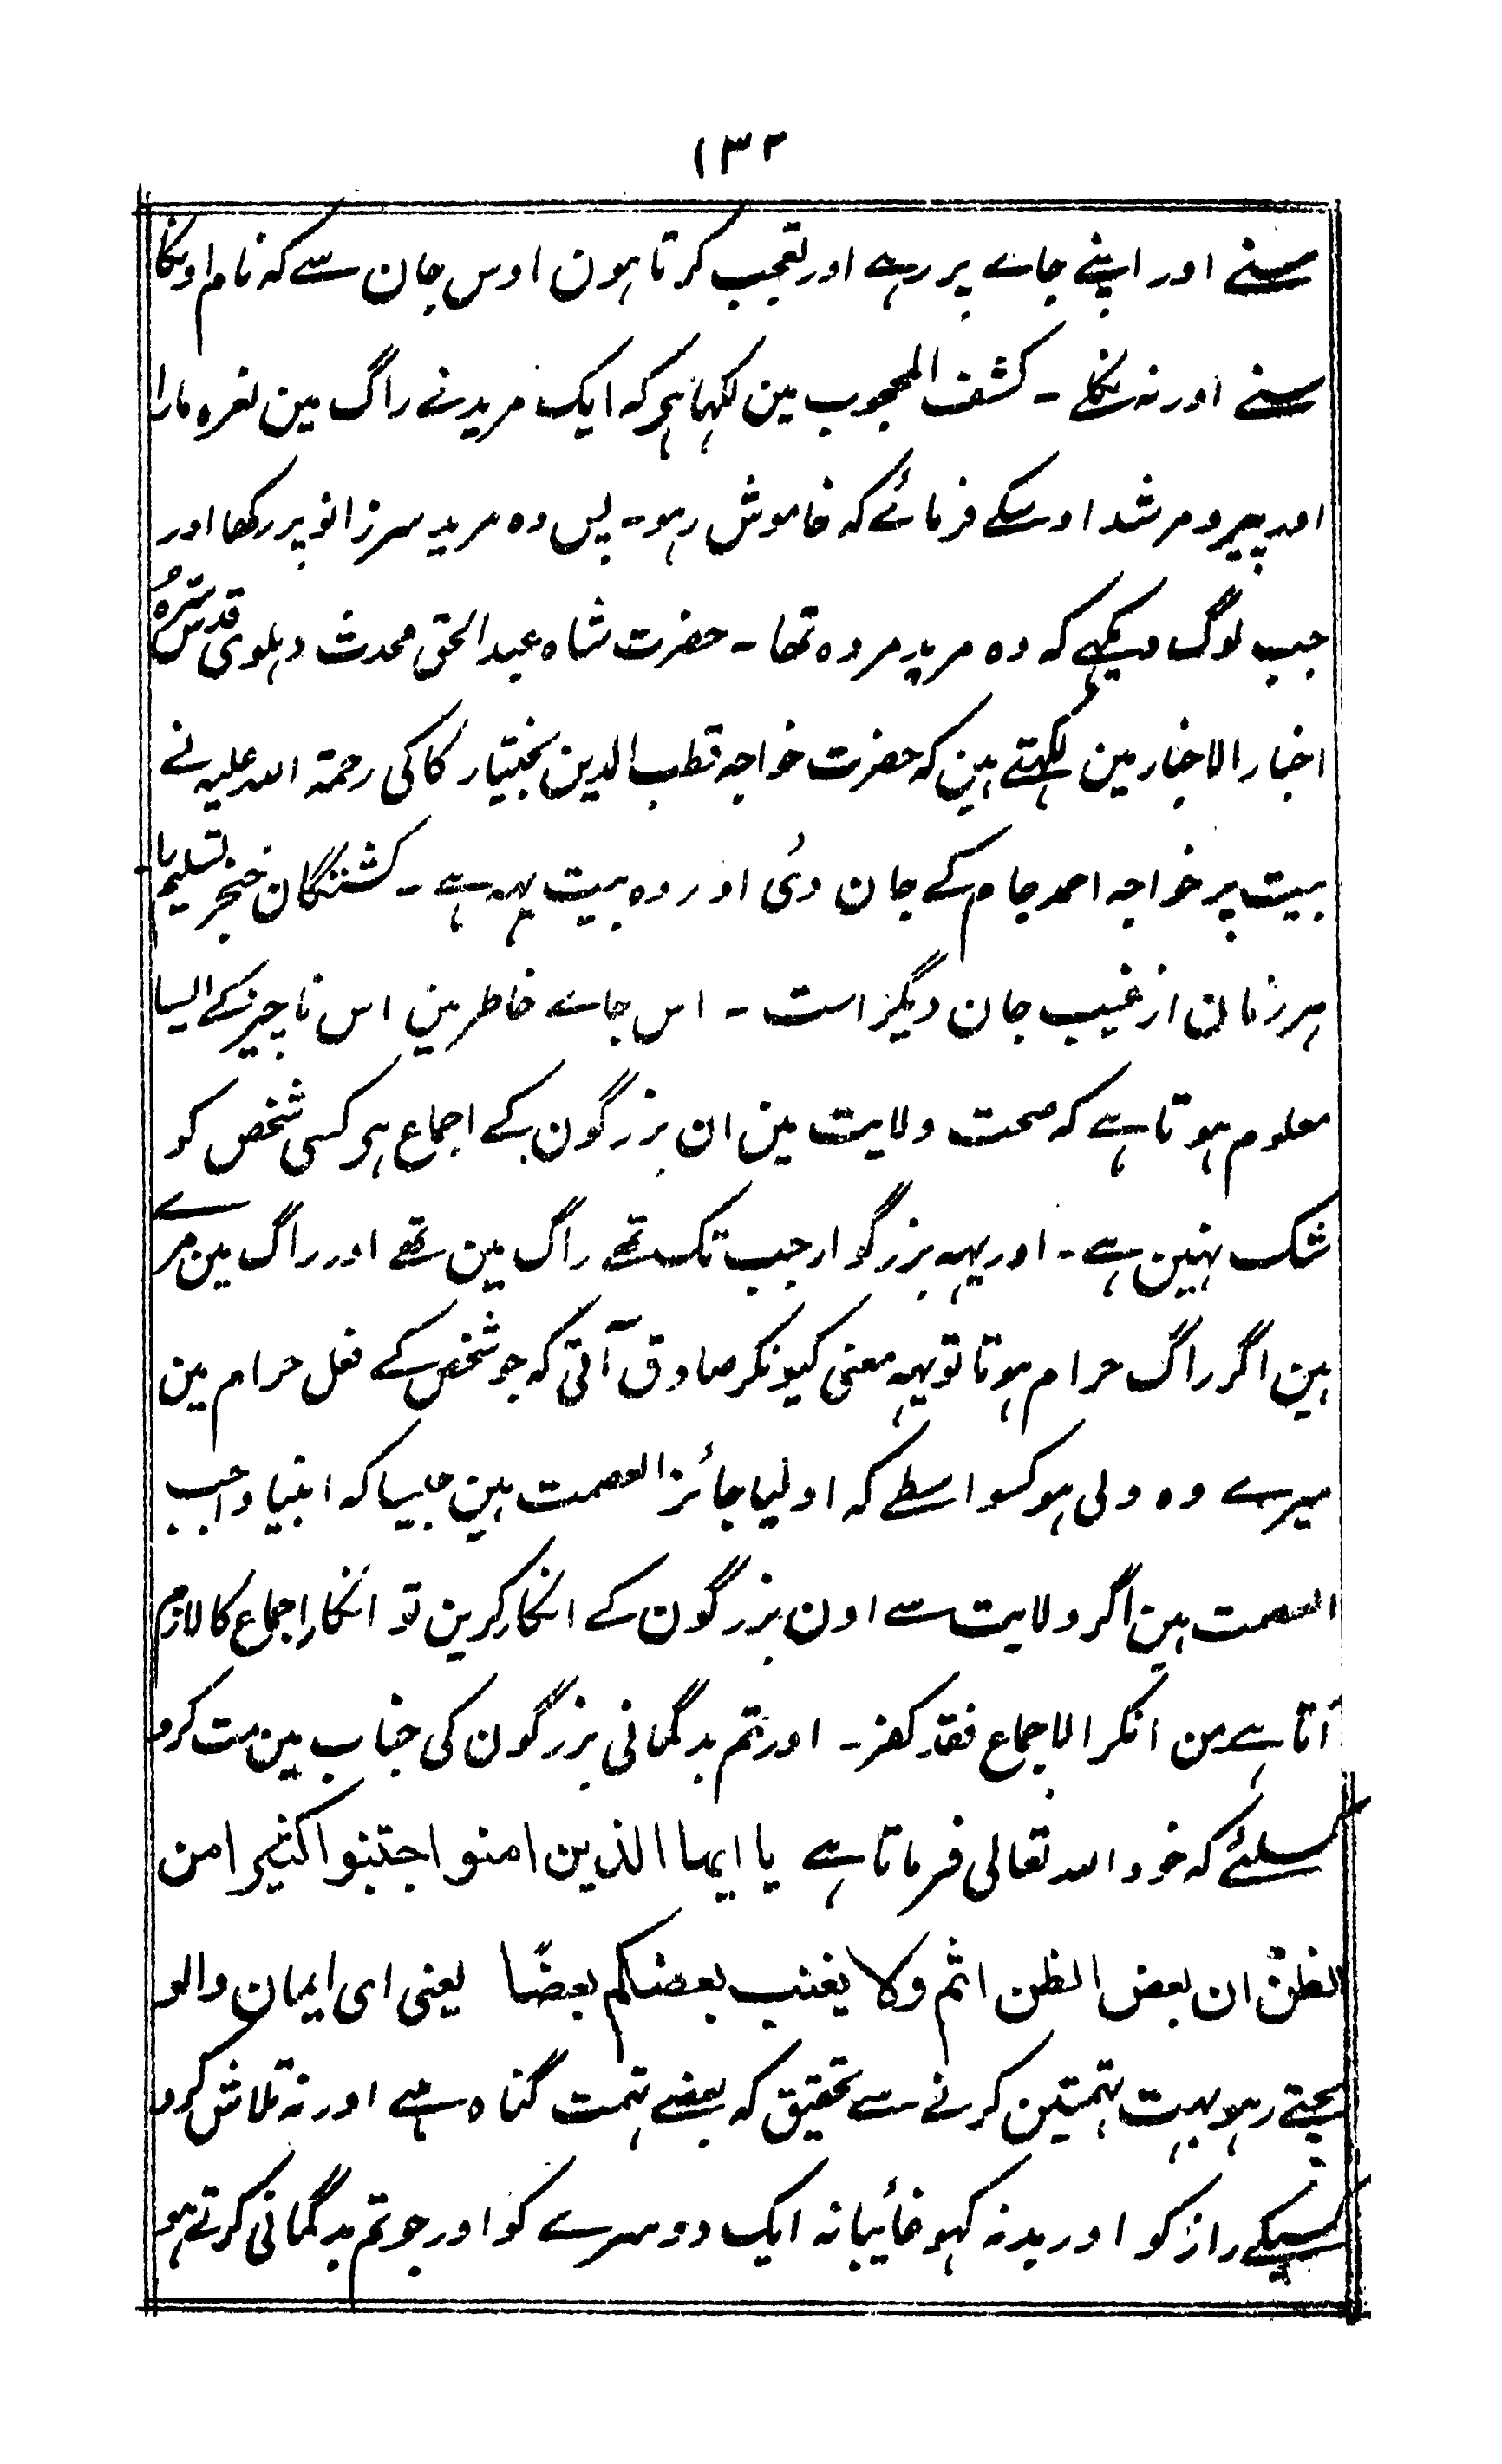 ۱۳۲
سنے اور اپنے جاے پر رہے اور تعجب کرتا ہون اوس جان سے کہ نام اونکا
سنے اور نہ نکلے ۔ کشف المحجوب مین لکہا ہی کہ ایک مرید نے راگ مین نعرہ مارا
اور پیر و مرشد اوسکے فرمائے کہ خاموش رہو۔ پس وہ مرید سر زانو پر رکھا اور
جب لوگ دیکہے کہ وہ مرید مردہ تھا ۔ حضرت شاہ عبد الحق محدث دہلوی قدس سرہُ
اخبار الاخیار مین لکہتے ہین کہ حضرت خواجہ قطب الدین بختیار کاکی رحمۃ اللہ علیہ نے
بیت پر خواجہ احمد جام کے جان دئی اور وہ بیت یہہ ہے ۔ کشتگان خنجر تسلیم را
ہر زمان از غیب جان دیگر است ۔ اس جاے خاطر مین اس ناچیز کے ایسا
معلوم ہوتا ہے کہ صحت ولایت مین ان بزرگون کے اجماع ہی کسی شخص کو
شک نہین ہے ۔ اور یہہ بزرگوار جب تک تھے راگ مین تھے اور راگ مین مرے
ہین اگر راگ حرام ہوتا تو یہہ معنی کیونکر صادق آتی کہ جو شخص کے فعل حرام مین
میرے وہ ولی ہو کسواسطے کہ اولیا جائز العصمت ہین جیسا کہ انبیا واجب
العصمت ہین اگر ولایت سے اون بزرگون کے انکار کرین تو انکار اجماع کا لازم
آتا ہے من انکر الاجماع فقد کفر ۔ اور تم بدگمانی بزرگون کی جناب مین مت کرو
کسلئے کہ خود اللہ تعالی فرماتا ہے یا ایہا الذین امنوا اجتنبوا کثیرا من
الظن ان بعض الظن اثم ولا یغتب بعضکم بعضًا یعنی ای ایمان والو
بچتے رہو بہت تہمتین کرنے سے تحقیق کہ بعضے تہمت گناہ ہے اور نہ تلاش کرو
کسیکے راز کو اور بد نہ کہو غائبانہ ایک دوسرے کو اور جو تم بدگمانی کرتے ہو